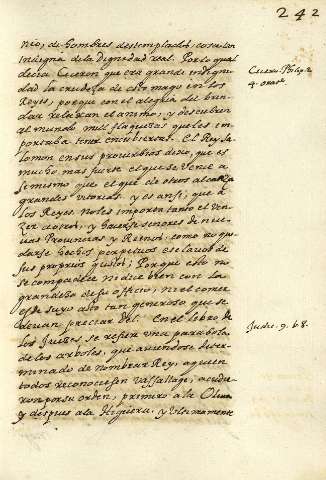 242
nio, de hombres destemplados, cosa tan
indigna de la dignidad real. Por lo qual
decia Ciceron que era grande indigni-
dad la crudeza de estomago en los
Reyes, porque con el alegria del brin-
dar relaxan el animo, y descubren
al mundo mil flaquezas que les im-
portaba tener encubiertas. El Rey Sa
lomon en sus proverbios dixo, que es
mucho mas fuerte el que se vence a
se mismo que el que de otros alcanza
grandes vitorias. y es ansi, que a
los Reyes no les importa tanto el ven-
zer a otros, y haverse señores de nue-
vas Provincias y Reinos, como no que-
darse hechos perpetuos esclavos de
sus proprios gustos; Porque esto no
se compadece ni dice bien con la
grandeza de su officio, ni el comer
es de suyo acto tan generoso que se
devan preciar del. En el libro de
los Jueces se refiere una parabola
de los arboles, que aviendose deter-
minado de nombrar Rey, a quien
todos reconociesen vassallage, acudie
ron por su orden, primero a la Oliva
y despues a la Higuera, y ultimamente
Cicero. Philip. 2
4. orat.
Judic. 9. 68.